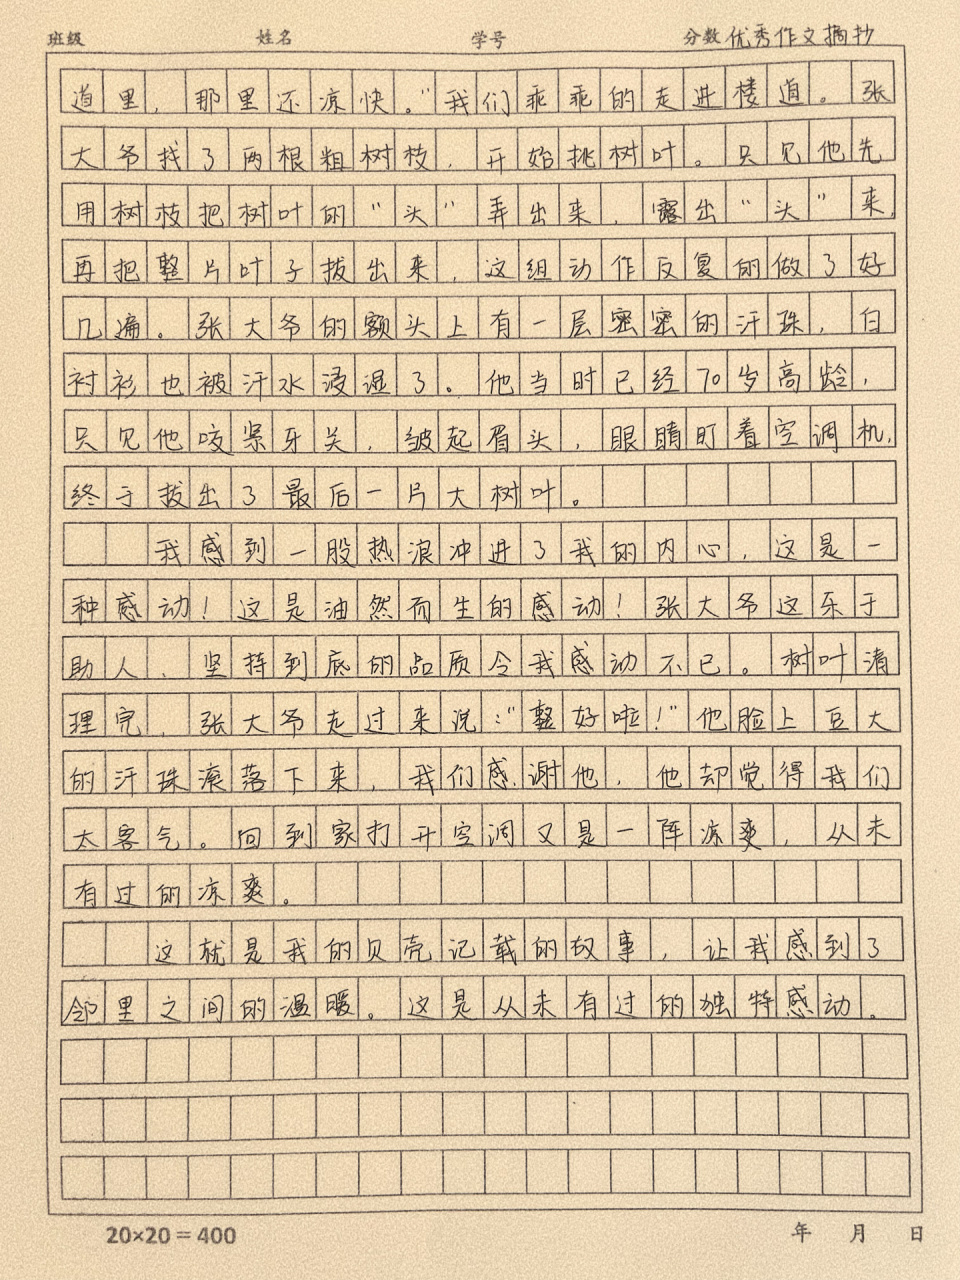 班级 姓名 学号 分数 优秀作文摘抄
道里，那里还凉快。”我们乖乖的走进楼道。张
大爷找了两根粗树枝，开始挑树叶。只见他先
用树枝把树叶的“头”弄出来，露出“头”来，
再把整片叶子拔出来，这组动作反复的做了好
几遍。张大爷的额头上有一层密密的汗珠，白
衬衫也被汗水浸湿了。他当时已经70岁高龄，
只见他咬紧牙关，皱起眉头，眼睛盯着空调机，
终于拔出了最后一片大树叶。
我感到一股热浪冲进了我的内心，这是一
种感动！这是油然而生的感动！张大爷这乐于
助人、坚持到底的品质令我感动不已。树叶清
理完，张大爷走过来说：“整好啦！”他脸上豆大
的汗珠滚落下来，我们感谢他，他却觉得我们
太客气。回到家打开空调又是一阵凉爽，从未
有过的凉爽。
这就是我的贝壳记载的故事，让我感到了
邻里之间的温暖。这是从未有过的独特感动。
20×20＝400 年 月 日